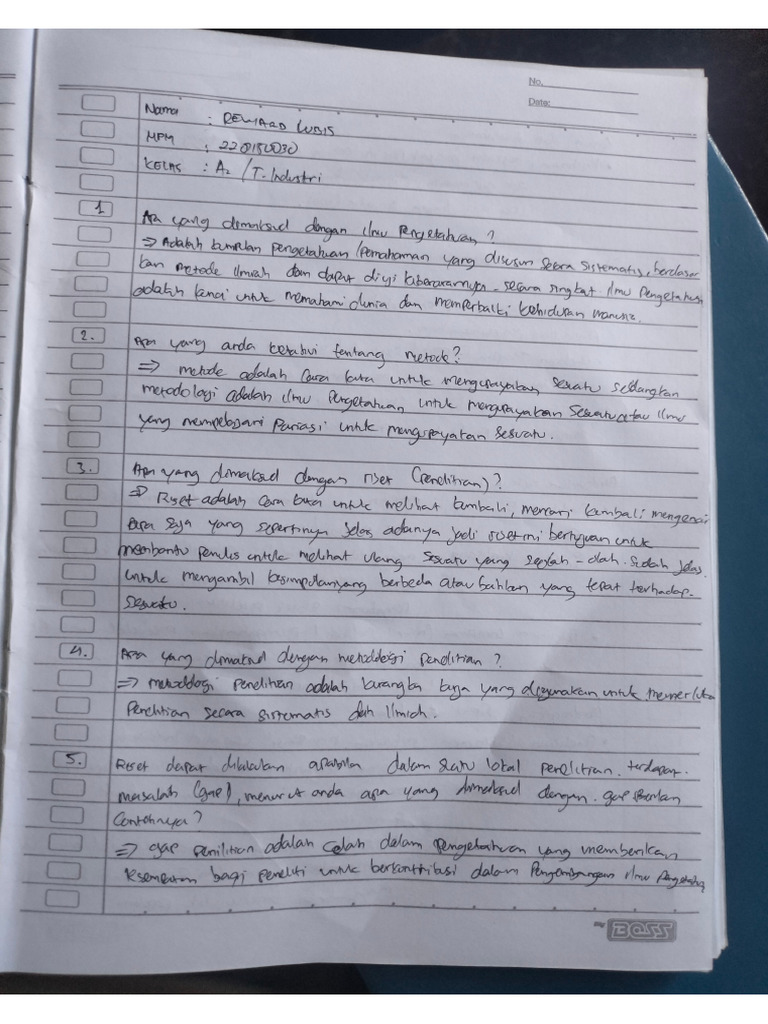 No.
Date:
Nama : REWARD LUBIS
NPM : 220130030
KELAS : A2 / T. Industri
1 Apa yang dimaksud dengan Ilmu Pengetahuan ?
⇒ Adalah kumpulan pengetahuan / Pemahaman yang disusun secara sistematis, berdasar
kan metode Ilmiah dan dapat diuji kebenarannya - secara singkat Ilmu Pengetahuan
adalah kunci untuk memahami dunia dan memperbaiki kehidupan manusia.
2. Apa yang anda ketahui tentang metode ?
⇒ metode adalah cara kerja untuk mengupayakan sesuatu sedangkan
metodologi adalah Ilmu Pengetahuan untuk mengupayakan Sesuatu atau Ilmu
yang mempelajari Variasi untuk mengupayakan sesuatu.
3. Apa yang dimaksud dengan riset (penelitian) ?
⇒ Riset adalah cara untuk melihat kembali, mencari kembali mengenai
apa saja yang sepertinya jelas adanya jadi riset ini bertujuan untuk
membantu penulis untuk melihat ulang sesuatu yang seolah - olah sudah jelas
untuk mengambil kesimpulan yang berbeda atau bahkan yang tepat terhadap
sesuatu.
4. Apa yang dimaksud dengan metodologi penelitian ?
⇒ metodologi penelitian adalah kerangka kerja yang digunakan untuk
Penelitian secara sistematis dan Ilmiah.
5. Riset dapat dilakukan apabila dalam satu lokal penelitian terdapat
masalah (gap), menurut anda apa yang dimaksud dengan gap Berikan
Contohnya ?
⇒ gap penilitian adalah celah dalam pengetahuan yang memberikan
ksempatan bagi peneliti untuk berkontribusi dalam Pengembangan Ilmu Pengetahuan
BOSS